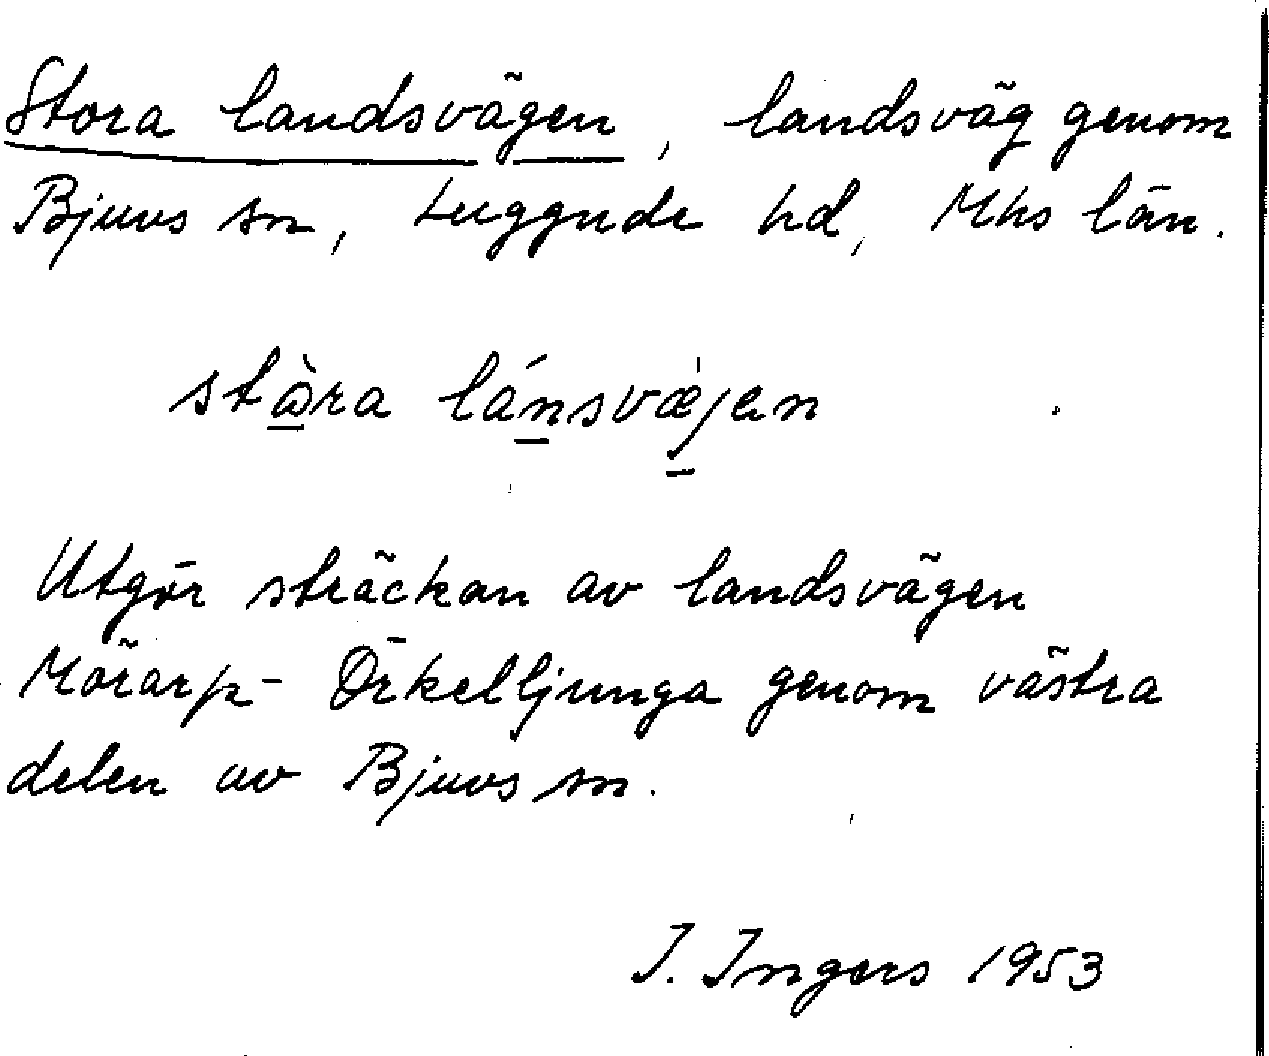 Stora landsvägen, landsväg genom
Bjuvs sn, Luggude hd, Mhs län.
stò̱ra láṉsvæj̱en
Utgör sträckan av landsvägen
Mörarp - Örkelljunga genom västra
delen av Bjuvs sn.
I. Ingers 1953